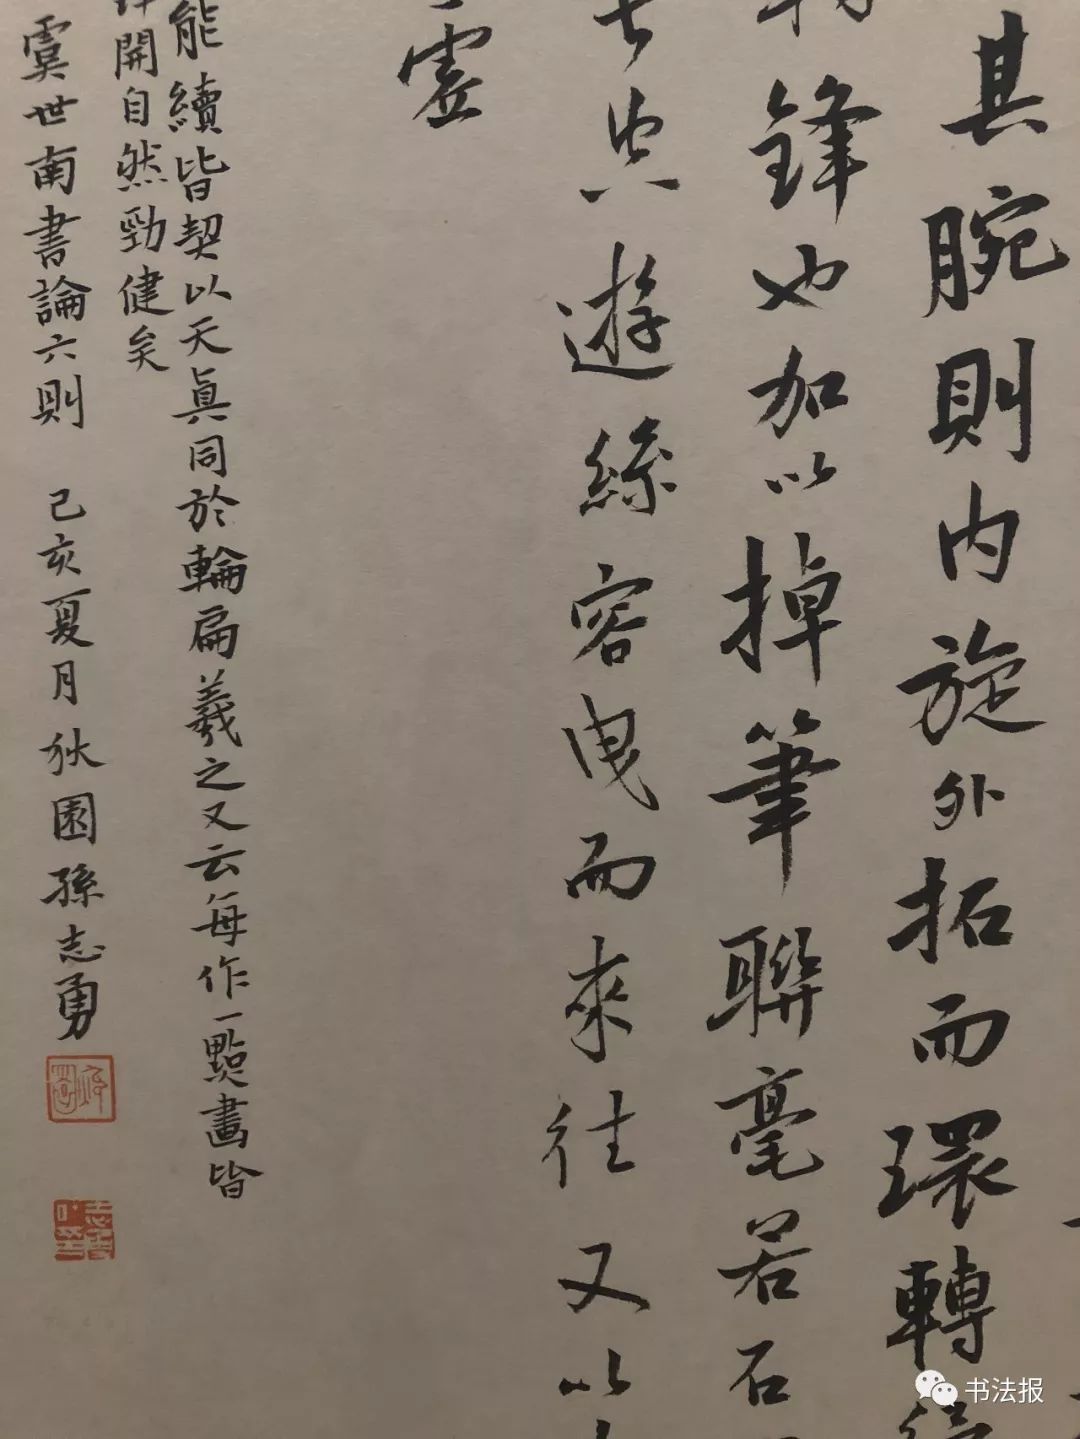 其腕則内旋外拓而環轉
鋒也加以掉筆聯毫若石
空遊絲容曳而來往又以
虛
能續皆契以天真同於輪扁羲之又云每作一點畫皆
鋒開自然勁健矣
虞世南書論六則 己亥夏月狄園孫志勇
书法报